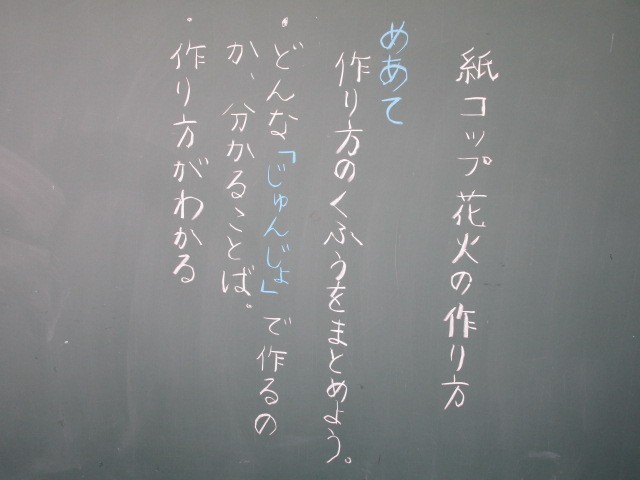 紙コップ花火の作り方
めあて
作り方のくふうをまとめよう。
・どんな「じゅんじょ」で作るの
か、分かることば。
・作り方がわかる